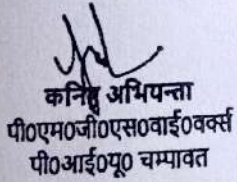 कनिष्ठ अभियन्ता
पी०एम०जी०एस०वाई०वर्क्स
पी०आई०यू० चम्पावत